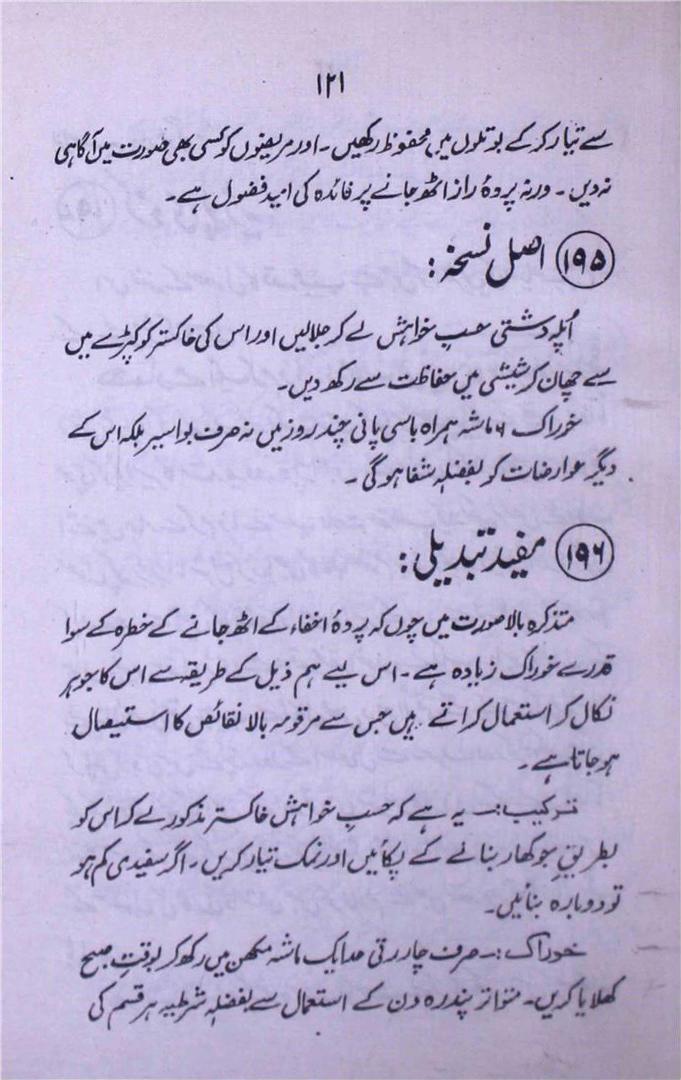 ۱۲۱
سے تیار کر کے بوتلوں میں محفوظ رکھیں۔ اور مریضوں کو کسی بھی صورت میں آگاہی
نہ دیں۔ ورنہ پردۂ راز اٹھ جانے پر فائدہ کی امید فضول ہے۔
۱۹۵ اصل نسخہ:
اُپلہ دشتی حسبِ خواہش لے کر جلالیں اور اس کی خاکستر کو کپڑے میں
سے چھان کر شیشی میں حفاظت سے رکھ دیں۔
خوراک ۶ ماشہ ہمراہ باسی پانی چند روز میں نہ صرف بواسیر بلکہ اس کے
دیگر عوارضات کو بفضلہٖ شفا ہوگی۔
۱۹۶ مفید تبدیلی:
متذکرہ بالا صورت میں چوں کہ پردۂ اخفاء کے اٹھ جانے کے خطرہ کے سوا
قدرے خوراک زیادہ ہے۔ اس لیے ہم ذیل کے طریقہ سے اس کا جوہر
نکال کر استعمال کراتے ہیں جس سے مرقومہ بالا نقائص کا استیصال
ہو جاتا ہے۔
ترکیب:۔ یہ ہے کہ حسبِ خواہش خاکستر مذکور لے کر اس کو
بطریقِ جوکھار بنانے کے پکائیں اور نمک تیار کریں۔ اگر سفیدی کم ہو
تو دوبارہ بنائیں۔
خوراک:۔ صرف چار رتی حد ایک ماشہ مکھن میں رکھ کر بوقتِ صبح
کھلایا کریں۔ متواتر پندرہ دن کے استعمال سے بفضلہٖ شرطیہ ہر قسم کی